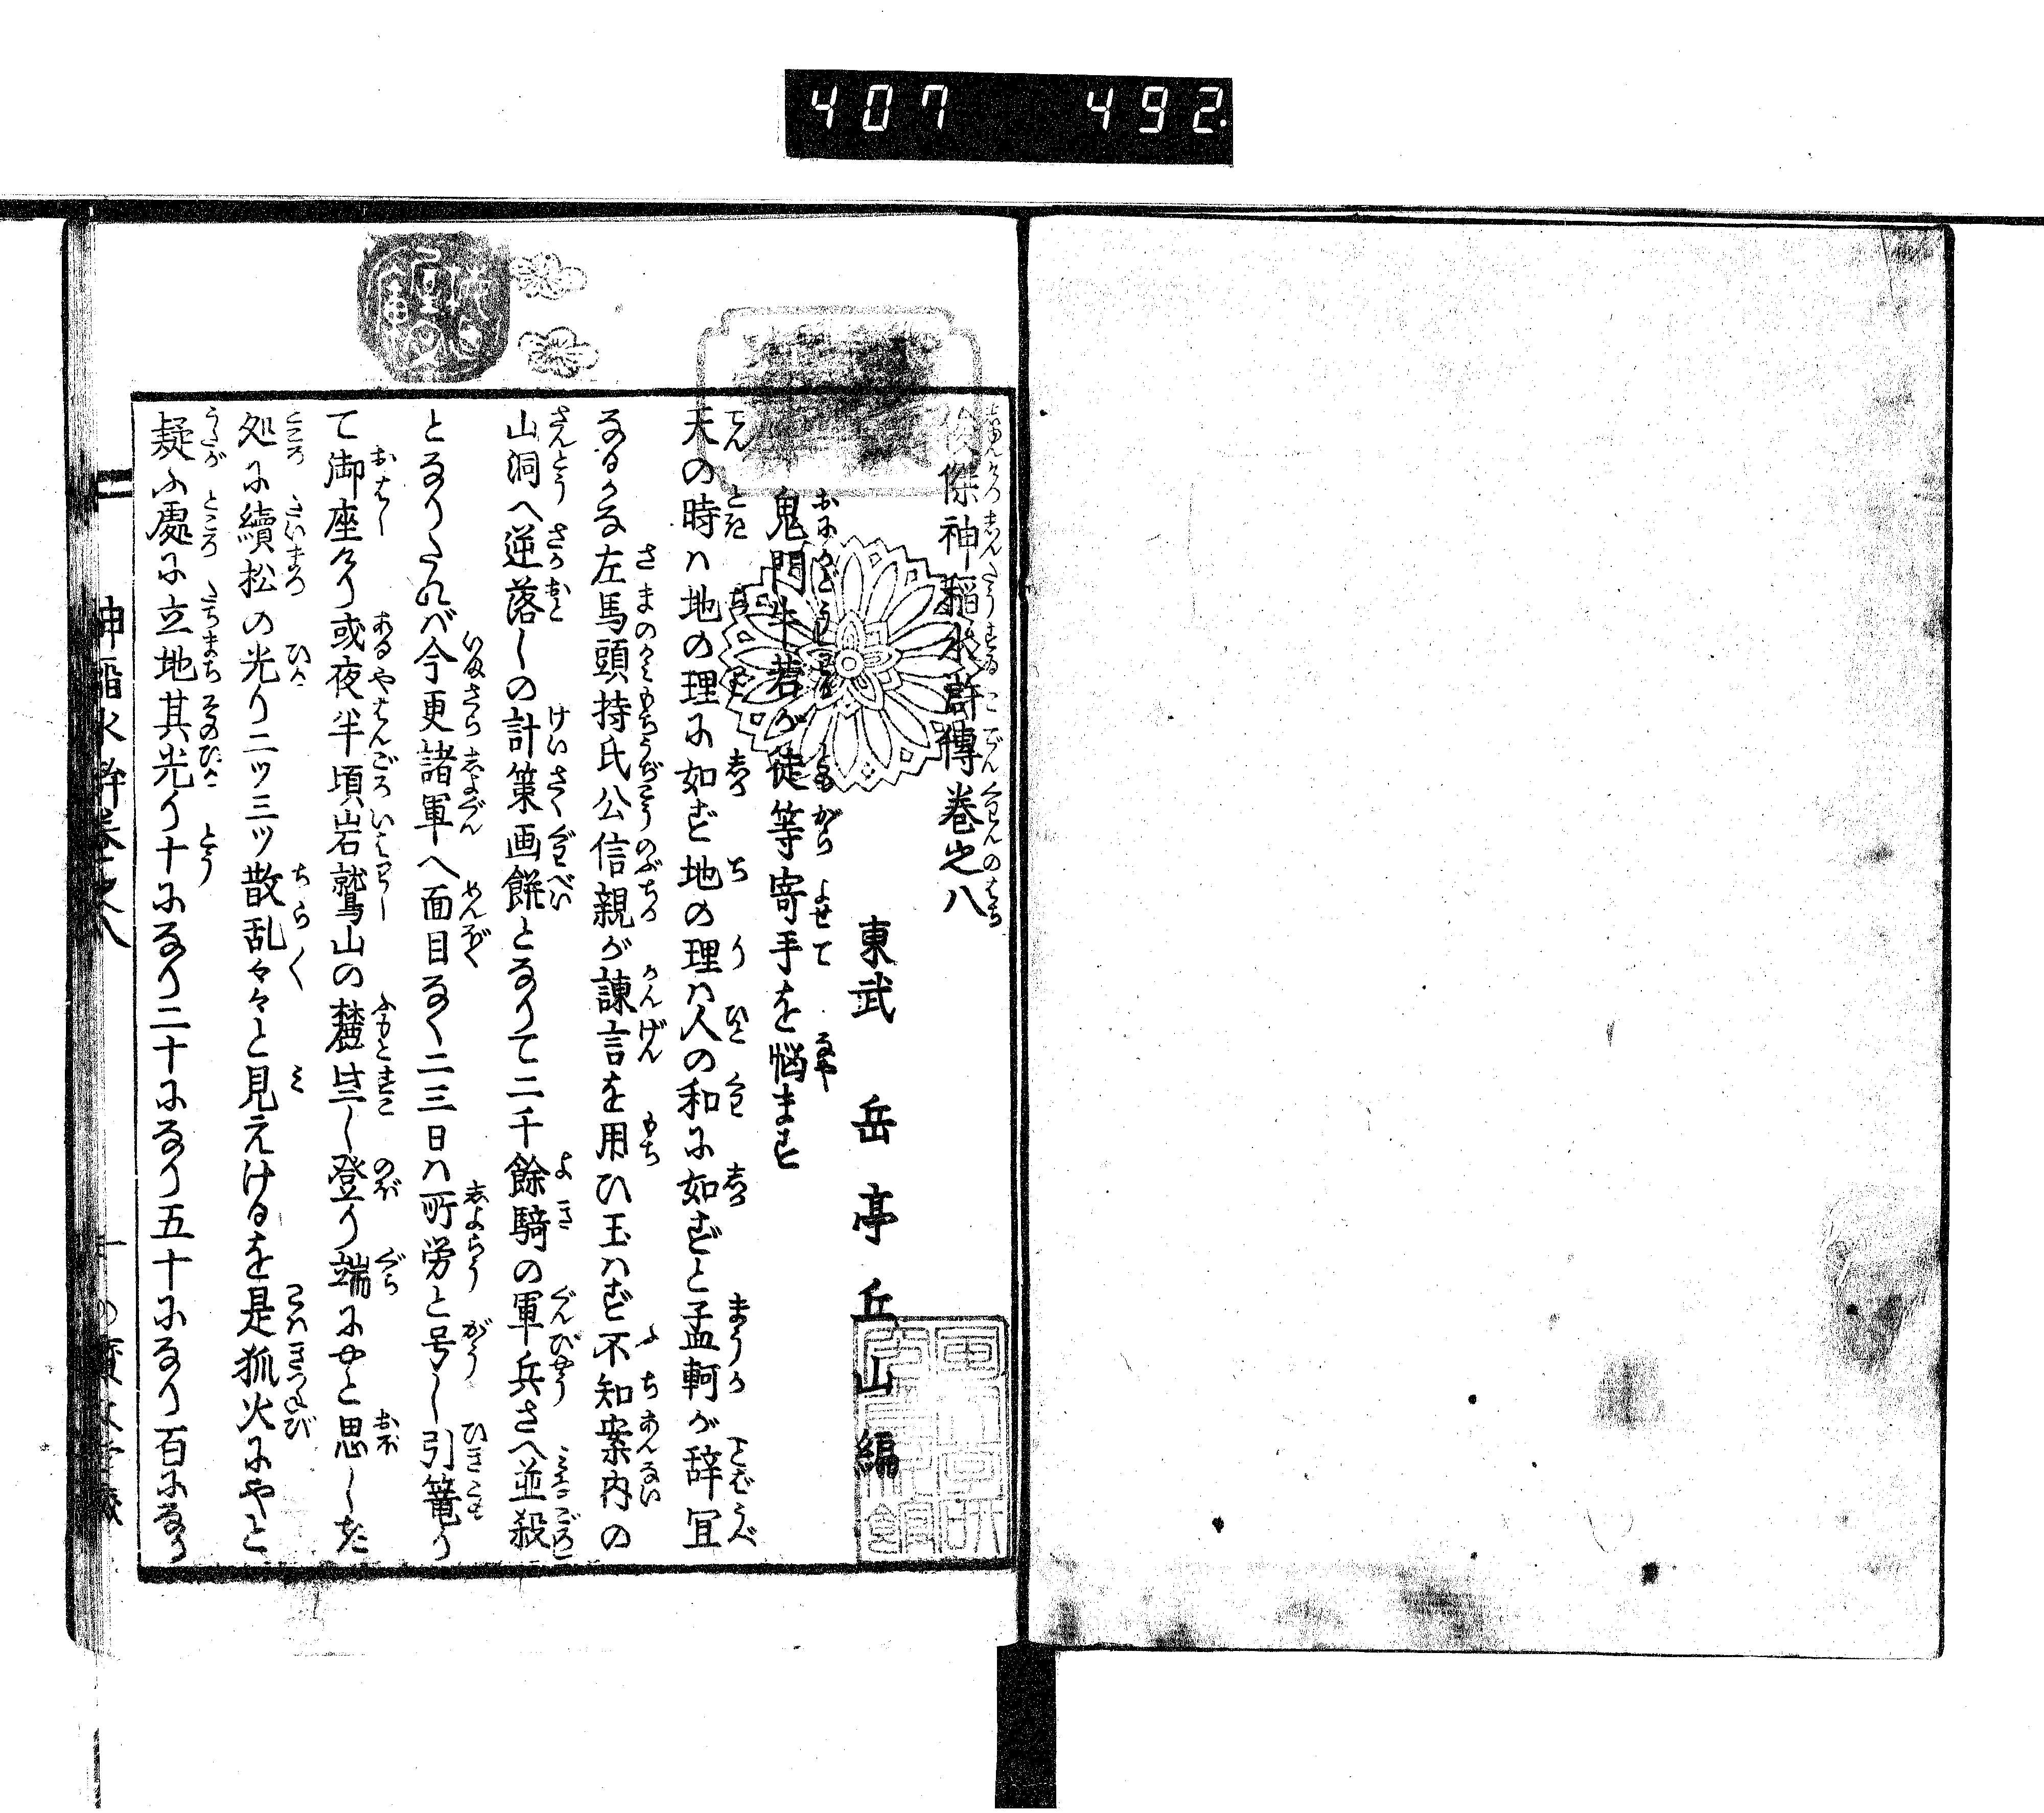 407 492
俊傑神稲水滸傳巻之八
東武 岳亭丘山編
鬼門牛若が徒等寄手を悩ます
天の時ハ地の理に如ず地の理ハ人の和に如ずと孟軻が辞宜
なるかな左馬頭持氏公信親が諌言を用ひ玉ハず不知案内の
山洞へ逆落しの計策画餅となりて二千餘騎の軍兵さへ並殺
となりたれバ今更諸軍へ面目なく二三日ハ所労と号し引篭り
て御座けり或夜半頃岩鷲山の麓
登り端にやと思しき
処に續松の光り二ツ三ツ散乱々々と見えけるを是狐火にやと
疑ふ處に立地其光り十になり二十になり五十になり百になり
神稲水滸巻之八
一